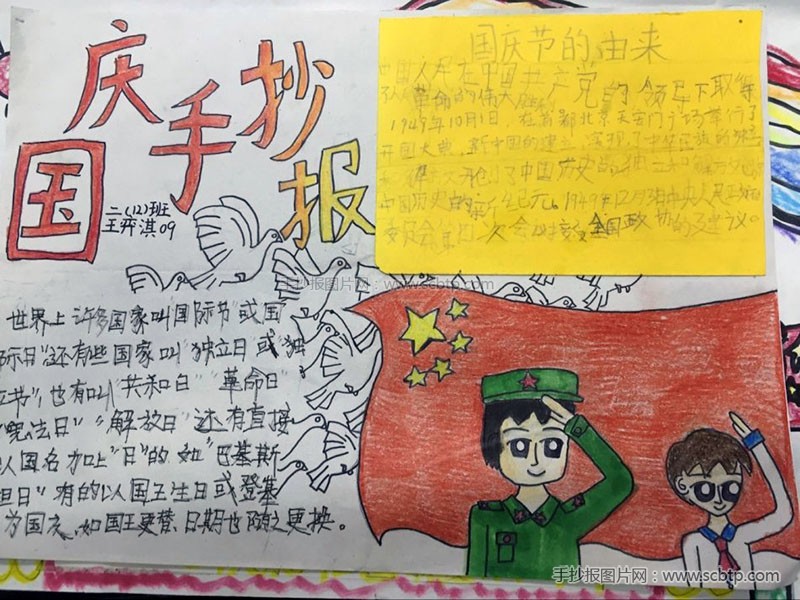 国庆手抄报
二(12)班
王弈淇09
国庆节的由来
中国人民在中国共产党的领导下取得
革命的伟大
1949年10月1日，在首都北京天安门广场举行了
开国大典，新中国的建立，实现了中华民族的独立
和解 开创了中国历史的
中国历史的新纪元。1949年12月3日中央人民政府
委员会第四次会 接受全国政协的 建议。
手抄报图片网：www.scbtp.com
世界上许多国家叫"国际节"或国
际日"还有些国家叫"独立日或"独
立节"，也有叫"共和日""革命日"
"宪法日""解放日"还有直接
以国名加上"日"的如"巴基斯
坦日"有的以国王生日或登基
为国庆，如国王更替、日期也随之更换。
手抄报图片网：www.scbtp.com